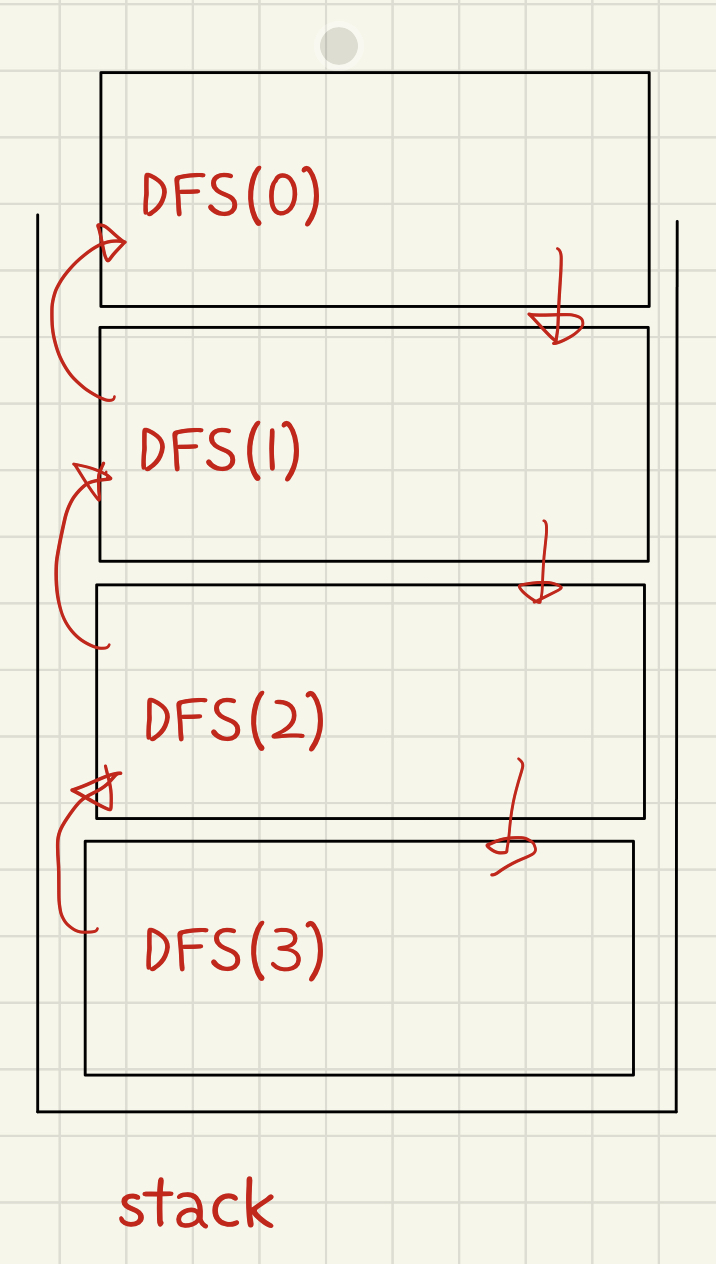 DFS(0)
DFS(1)
DFS(2)
DFS(3)
stack